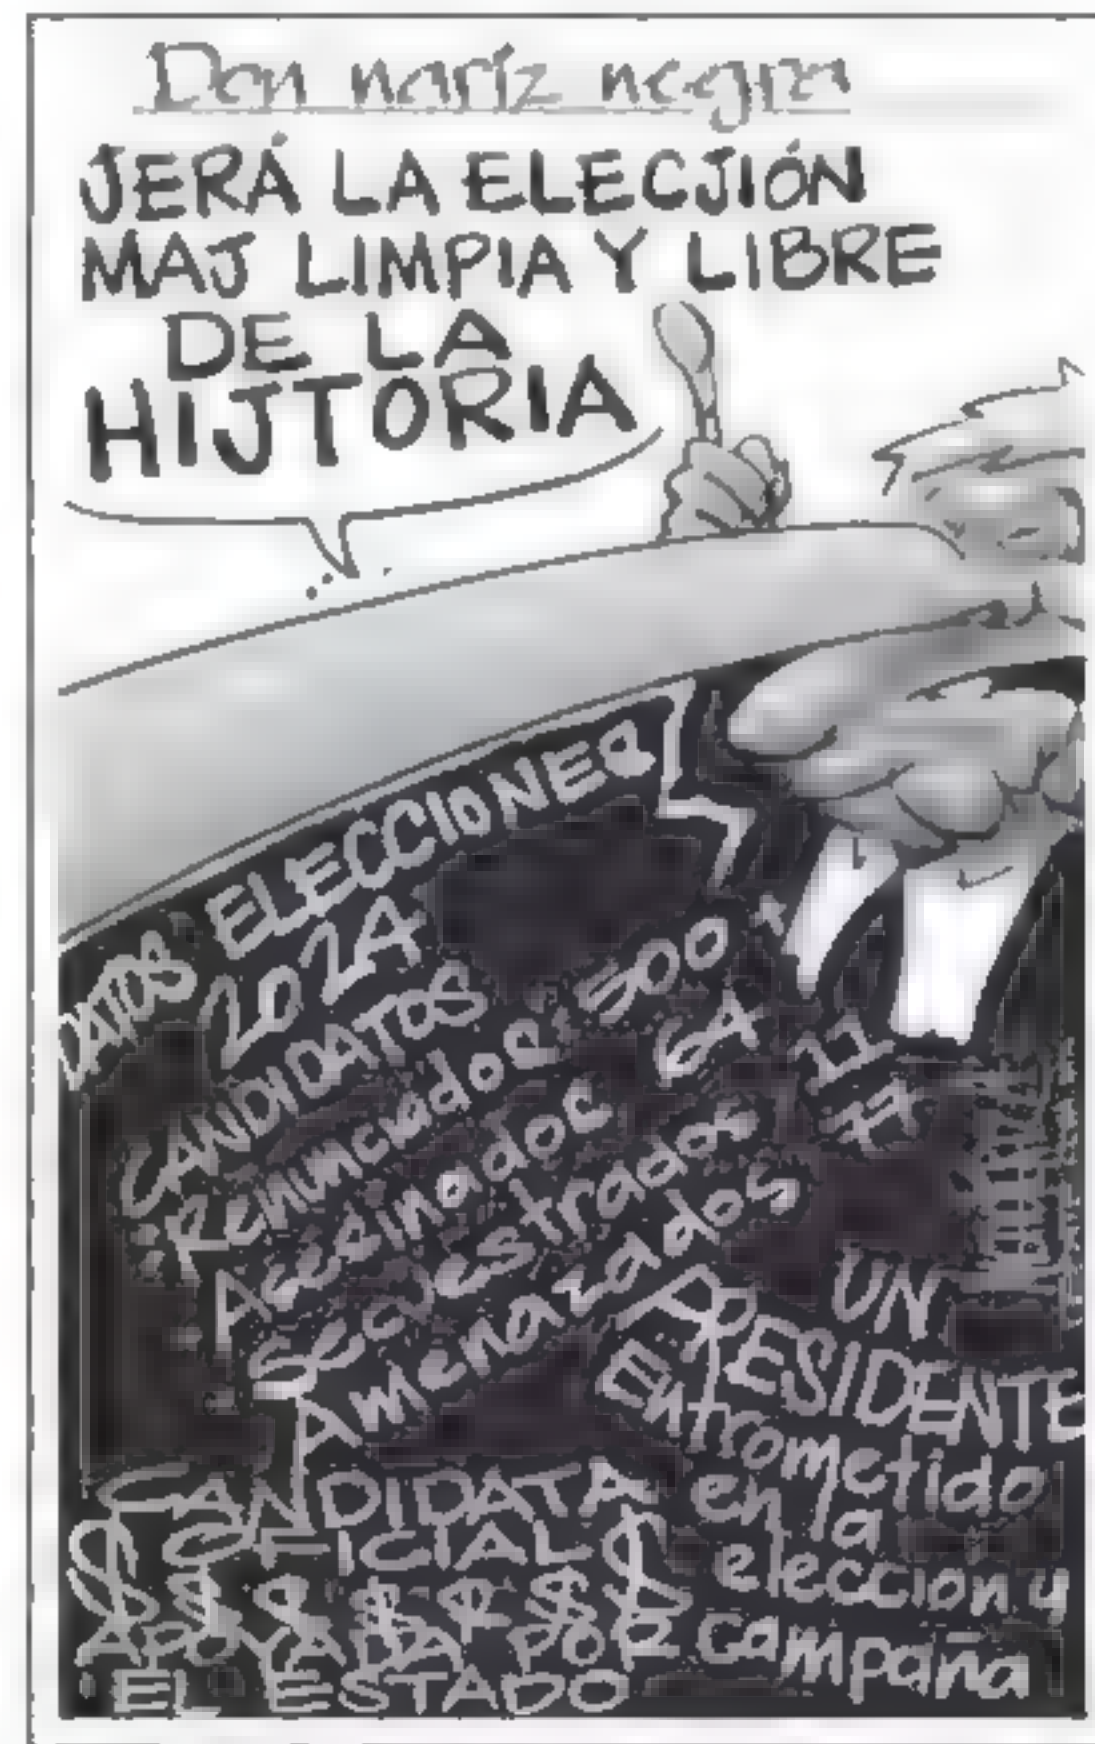 Don nariz negra
JERÁ LA ELECJIÓN
MAJ LIMPIA Y LIBRE
DE LA
HIJTORIA
DATOS ELECCIONES
2024
CANDIDATOS
Renunciados 500 +
Asesinados 64
Secuestrados 11
Amenazados 77
UN
PRESIDENTE
Entrometido
en la
eleccion y
campaña
CANDIDATA
OFICIAL
$ $ $ $ $ $ $
APOYADA POR
EL ESTADO